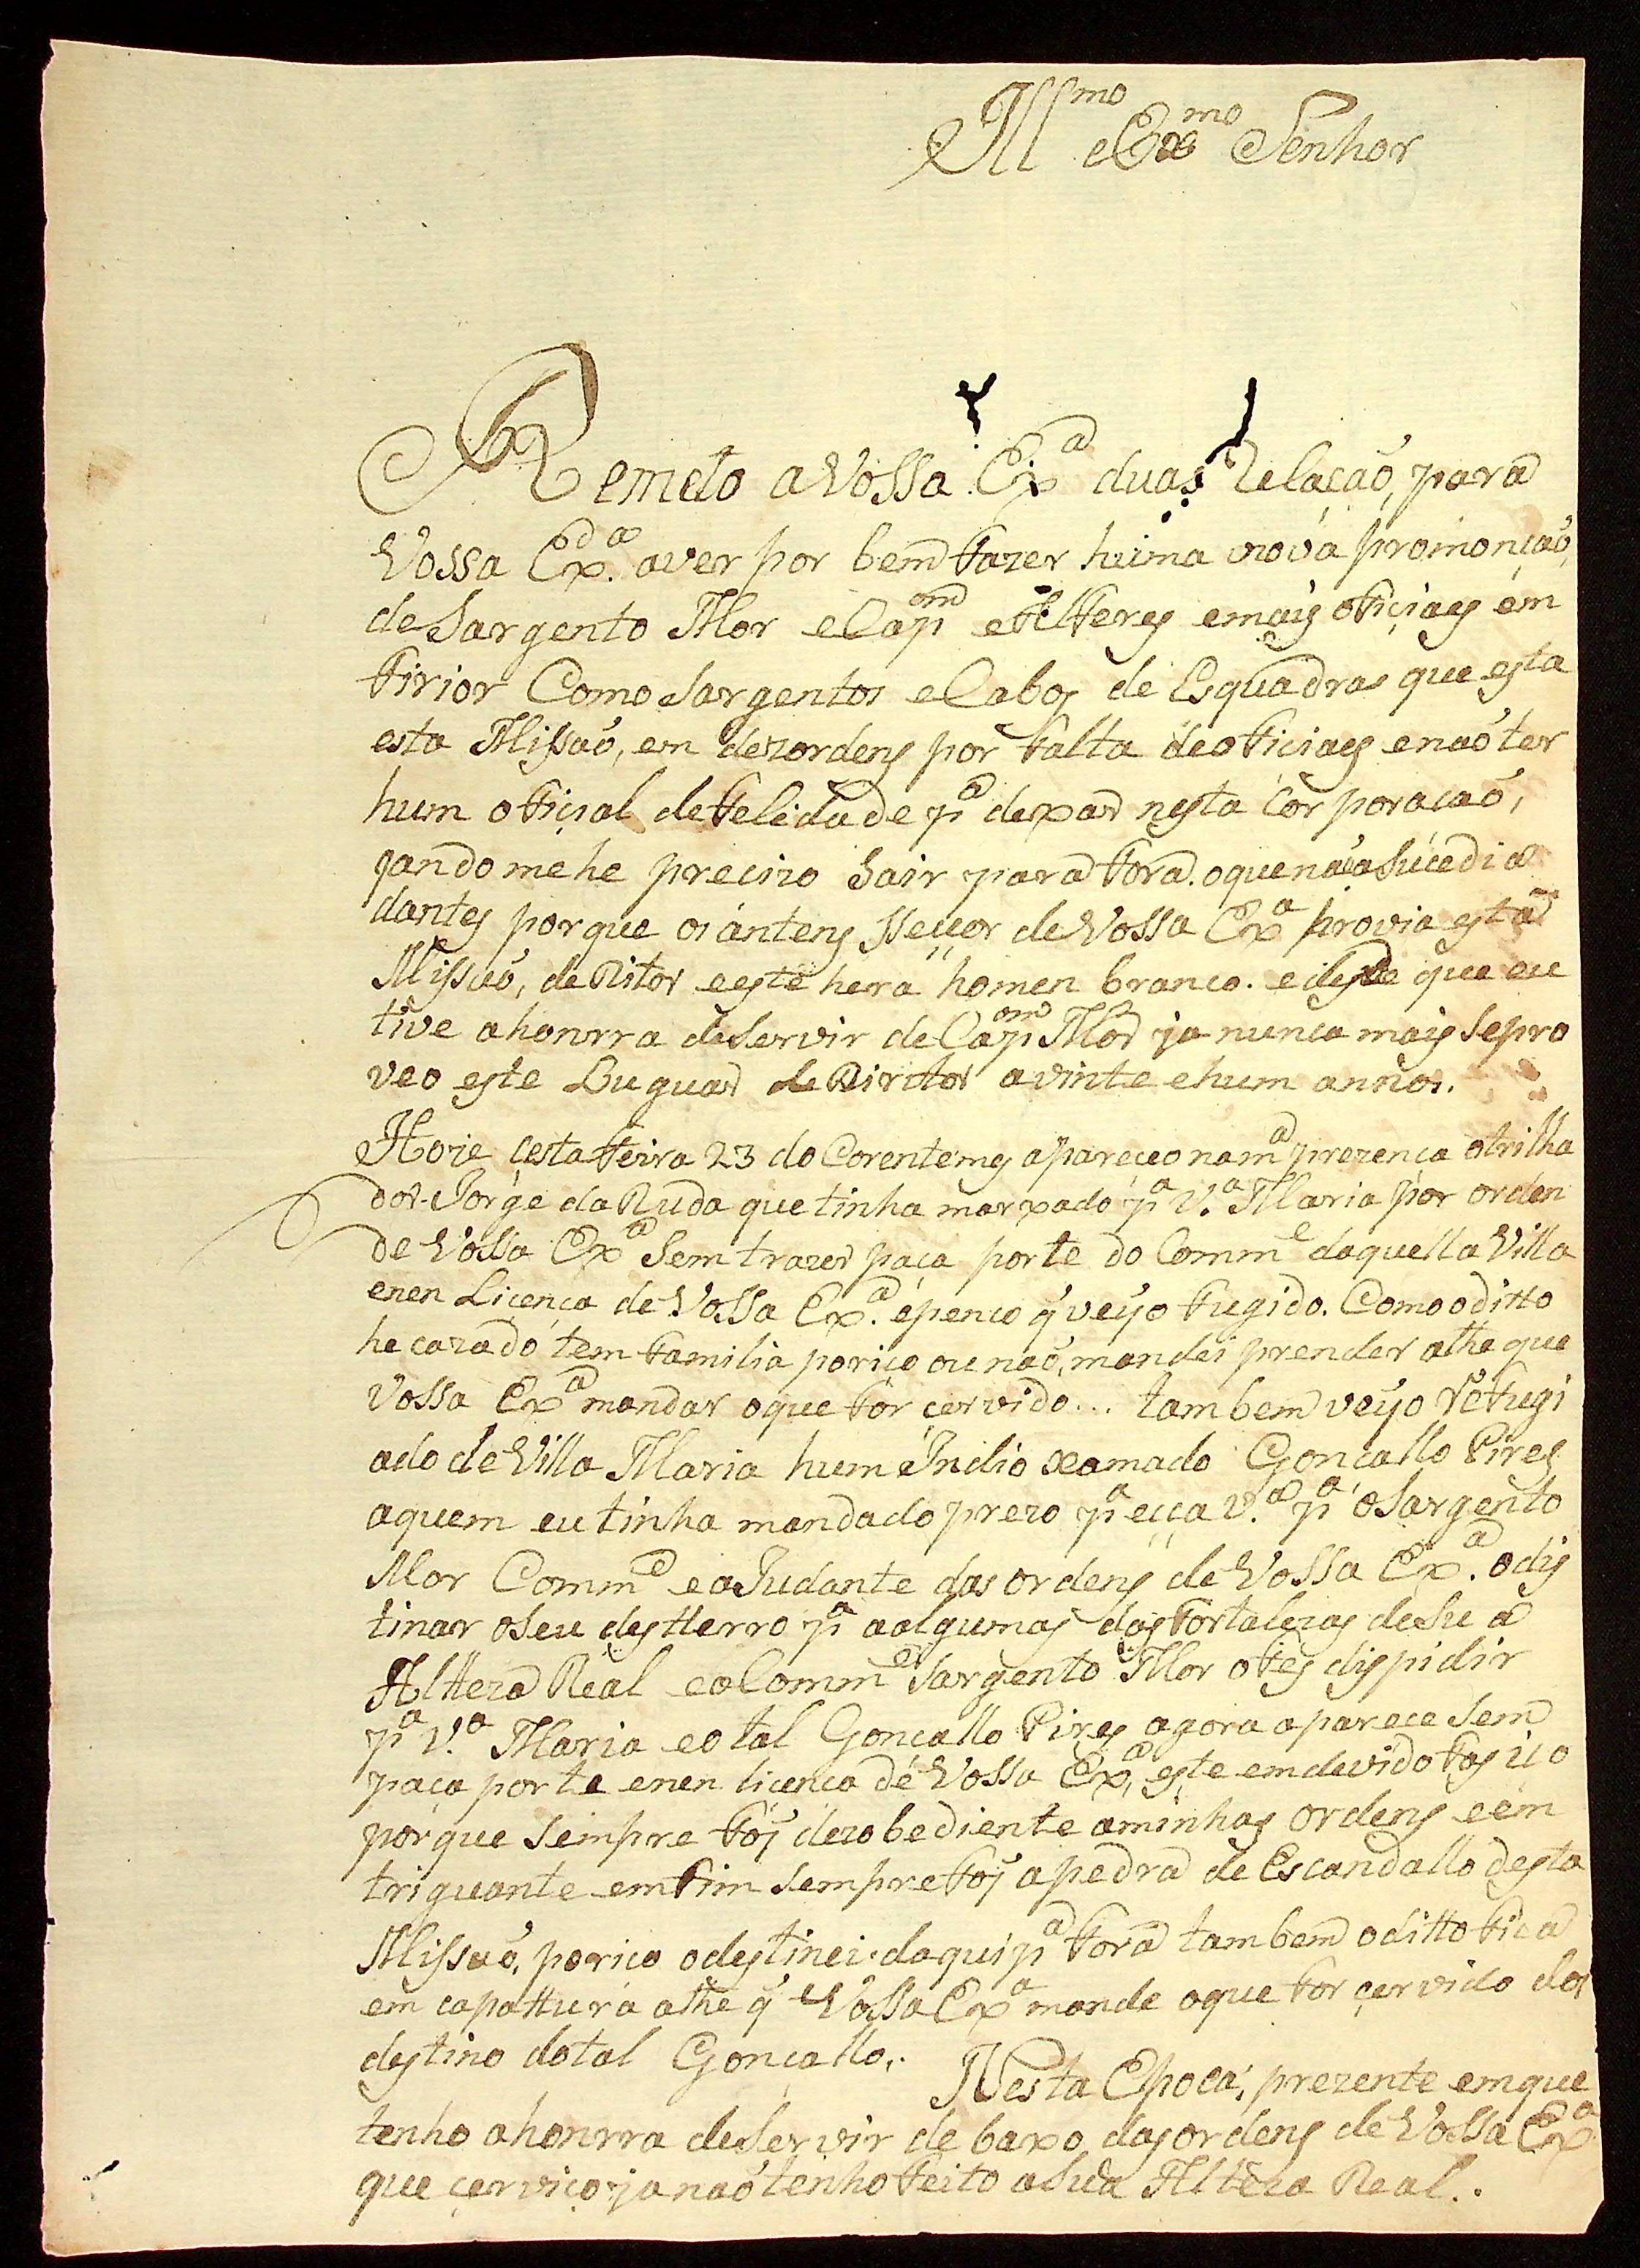 Ill.mo e Ex.mo Senhor
Remeto a Vossa Ex.a duas Relação, para
Vossa Ex.a aver por bem fazer huma nova promonção
de Sargento Mor e Capm e Alferes e mais oficiaes em
firior Como Sargentos e Cabos de Esquadras que esta
esta Missão, em dezordens por falta de oficiaes e não ter
hum ofiçial de felidade p.a depar nesta Corporacaõ,
qando me he precizo Sair para fora. o que não a Sucedia
dantes porque os antens sseçor de Vossa Ex.a provia esta
Missaõ, de Ritor e este hera homen branco. e desde que eu
tive a honrra de Servir de Capm Mor ja nunca mais Se pro
veo este Luguar de Dirctor a vinte e hum annos.
Hoje çesta feira 23 do Corente mes apareceo na m.a prezença o trilha
dor Jorge da Ruda que tinha marxado p.a V.a Maria por orden
de Vossa Ex.a Sem trazer paça porte do Comm.e daquella Villa
e nen Liçença de Vossa Ex.a e penço q̃ veyo fugido. Como o ditto
he cazado tem familia poriço ou naõ, mandei prender athe que
Vossa Ex.a mandar o que for çervido... tambem veyo refugi
ado de Villa Maria hum Indio xamado Goncallo Pires
a quem eu tinha mandado prezo p.a eçça V.a p.a o Sargento
Mor Comm.e e a Judante das ordens de Vossa Ex.a o dis
tinar o seu desterro p.a a algumas das fortalezas de Su a
Altteza Real e o Comm.e Sargento Mor o fes dispidir
p.a V.a Maria e o tal Goncallo Pires agora aparece Sem
paça porte e nen licenca de Vossa Ex.a, este emdevido fas iço
porque Sempre foi dezobediente a minhas ordens e em
triguante emfim Sempre foi a pedra de Escandallo desta
Missaõ, poriço o destinei daqui p.a fora tambem o ditto fica
em capatura athe q̃ Vossa Ex.a mande o que for çervido do
destino do tal Gonçallo.
Nesta Epoca, prezente em que
tenho a honrra de Servir de baxo das ordens de Vossa Ex.a
que çerviço ja naõ tenho feito a Sua Alteza Real..